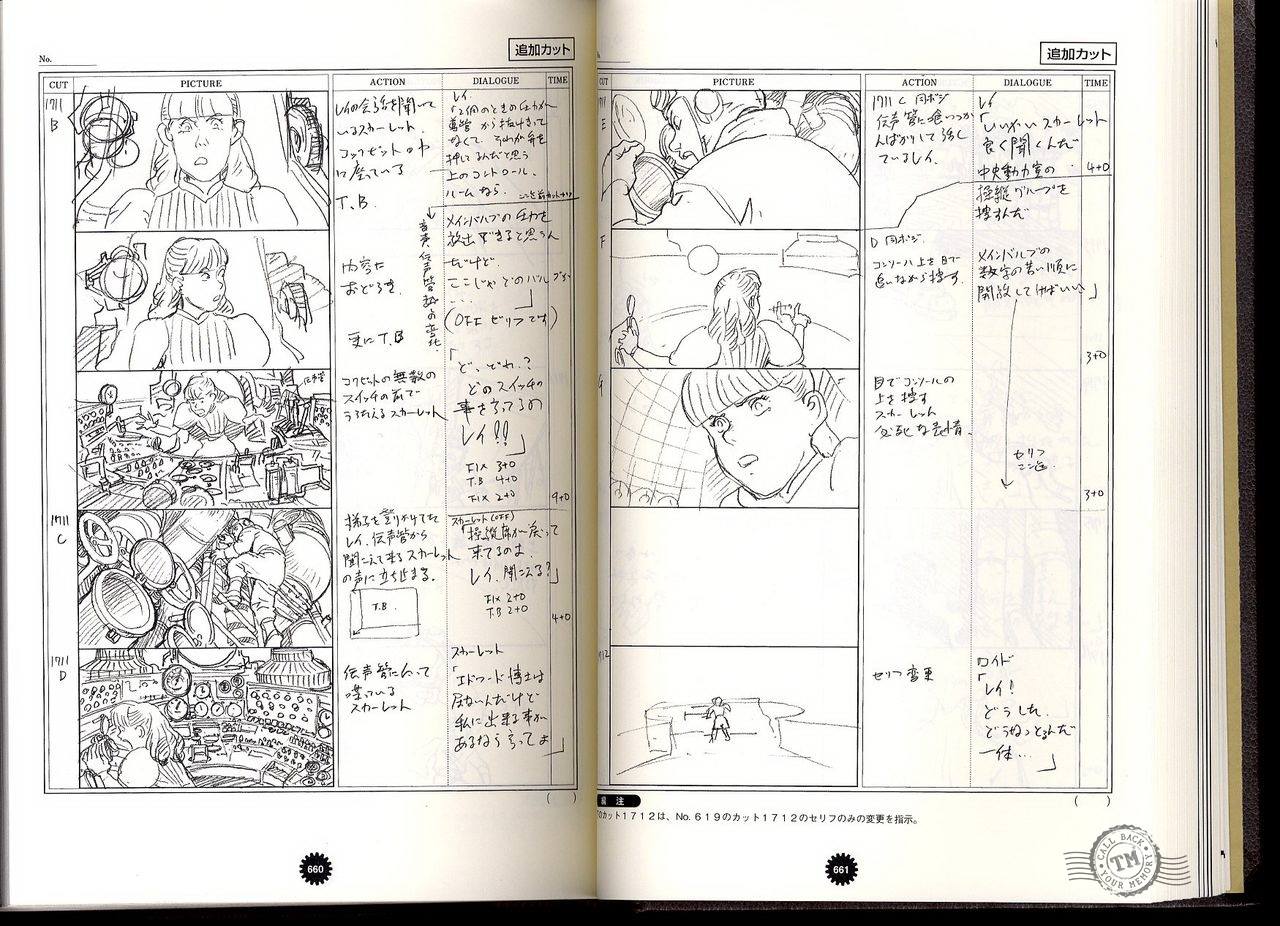 No.
追加カット
CUT PICTURE ACTION DIALOGUE TIME
1711
B
レイの会話を聞いて
いるスカーレット.
コックピットの中
に座っている
T.B.
内容に
おどろき.
更に T.B
レイ.
から抜けきって
なくて. それが弁を
押してるんだと思う
上のコントロール.
ルームなら.
メインバルブの圧力を
放出できると思うん
だけど.
ここじゃどのバルブか
...」
(OFF ゼリフです)
「
ど、どれ.?
どのスイッチの
事を言ってるの
レイ!!
」
FIX 3+0
T.B 4+0
FIX 2+0
9+0
コクピットの無数の
スイッチの前で
うろたえるスカーレット
伝声管
1711
C
レイ. 伝声管から
聞こえて来るスカーレット
の声に立ち止まる.
T.B.
スカーレット(OFF)
「操縦席から戻って
来てるのよ
レイ、聞こえる?」
FIX 2+0
T.B 2+0
4+0
1711
D
伝声管に向って
喋っている
スカーレット
スカーレット
「エドワード博士は
居ないんだけど
私に出来る事が
あるなら言ってよ」
( )
660
追加カット
CUT PICTURE ACTION DIALOGUE TIME
E
1711 C 同ポジ
伝声管に喰いつか
んばかりにして話し
ているレイ.
レイ
「いいかいスカーレット
良く聞くんだ
中央動力室の
操縦グループを
捜すんだ
4+0
F
D 同ポジ.
コンソール上を目で
追いながら捜す.
メインバルブの
数字の若い順に
開放してけばいい」
3+0
G
目でコンソールの
上を捜す
スカーレット
必死な表情.
セリフ
ここ迄.
3+0
1712
セリフ変更
ロイド
「レイ!
どうした.
どうなっとるんだ
一体...
」
( )
備 注
カット1712は、No.619のカット1712のセリフのみの変更を指示。
661
CALL BACK
TM
YOUR MEMORY